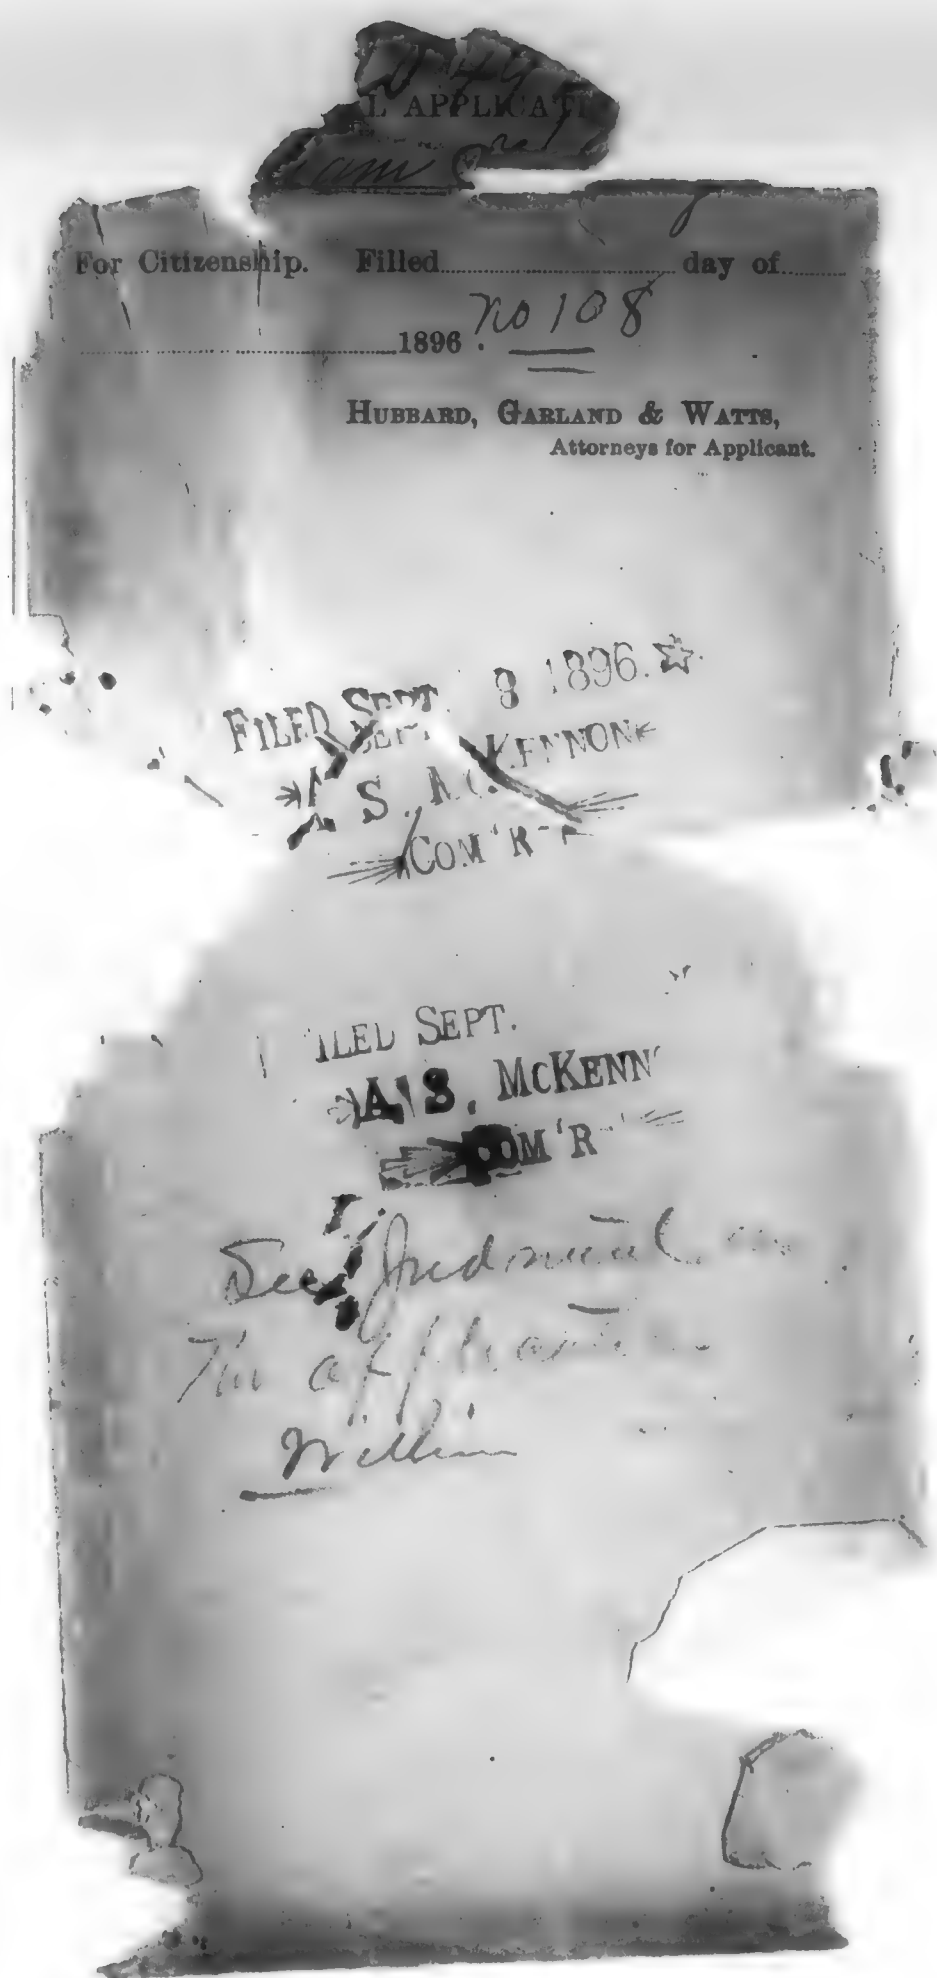 L APPLICATI
iam
For Citizenship. Filled.............................. day of........
..............................................1896. No 108
HUBBARD, GARLAND & WATTS,
Attorneys for Applicant.
FILED SEPT. 8 1896.
A. S. MCKENNON
COM'R
ILED SEPT.
A. S. MCKENN
COM'R
See Judment
The application
William